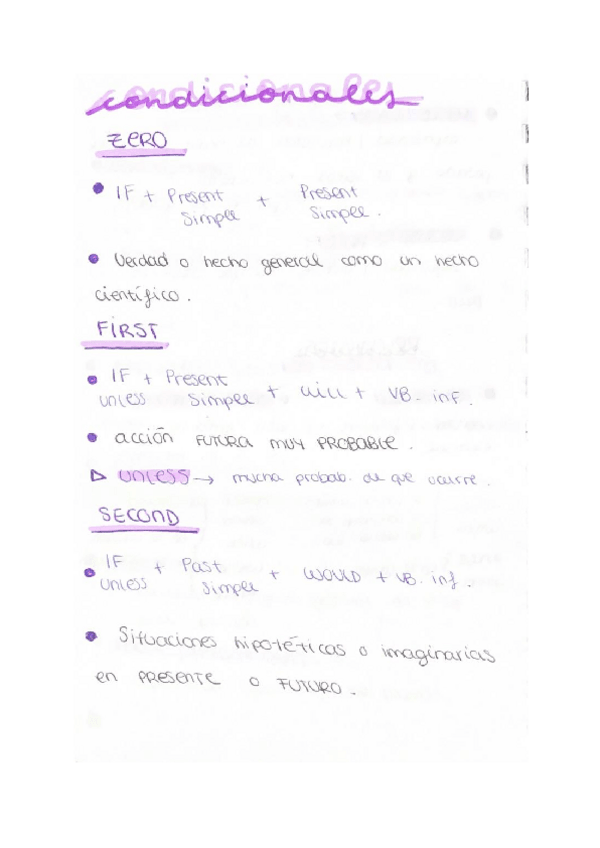 condicionales
ZERO
• IF + Present + Present
Simple Simple.
• Verdad o hecho general como un hecho
científico.
FIRST
• IF + Present + will + VB. inf.
unless Simple
• acción FUTURA MUY PROBABLE.
▷ UNLESS → mucha probab. de que ocurre.
SECOND
• IF + Past + WOULD + VB. inf.
unless Simple
• Situaciones hipotéticas o imaginarias
en PRESENTE o FUTURO.